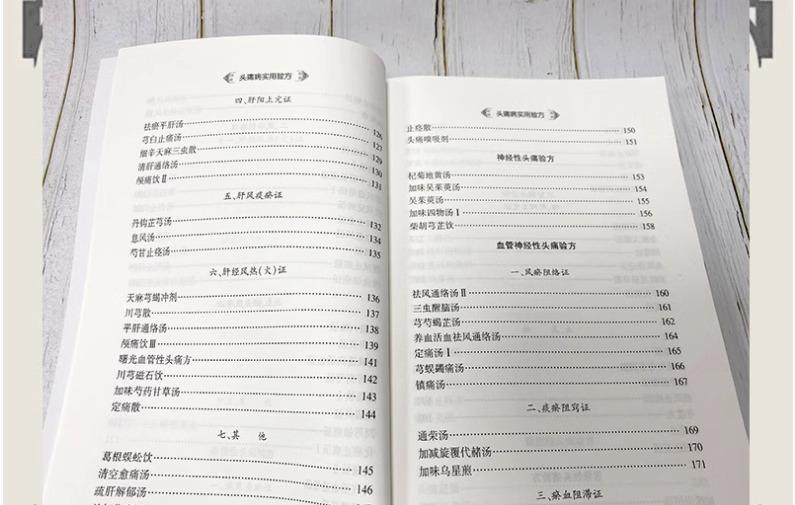 头痛病实用验方
四、肝阳上亢证
祛瘀平肝汤 126
芎白止痛汤 127
细辛天麻三虫散 129
清肝通络汤 130
颅痛饮Ⅱ 131
五、肝风痰瘀证
丹钩芷芎汤 132
息风汤 134
芎甘止痉汤 135
六、肝经风热(火)证
天麻芎蝎冲剂 136
川芎散 137
平肝通络汤 138
颅痛饮Ⅲ 139
曙光血管性头痛方 141
川芎磁石饮 142
加味芍药甘草汤 143
定痛散 144
七、其 他
葛根蜈蚣饮 145
清空愈痛汤 146
疏肝解郁汤
头痛病实用验方
止痉散 150
头痛嗅吸剂 151
神经性头痛验方
杞菊地黄汤 153
加味吴茱萸汤 154
吴茱萸汤 155
加味四物汤Ⅰ 156
柴胡芎芷饮 158
血管神经性头痛验方
一、风瘀阻络证
祛风通络汤Ⅱ 160
三虫醒脑汤 161
芎芍蝎芷汤 162
养血活血祛风通络汤 164
定痛汤Ⅰ 165
芎蜈蠲痛汤 166
镇痛汤 167
二、痰瘀阻窍证
通荣汤 169
加减旋覆代赭汤 170
加味乌星煎 171
三、瘀血阻滞证